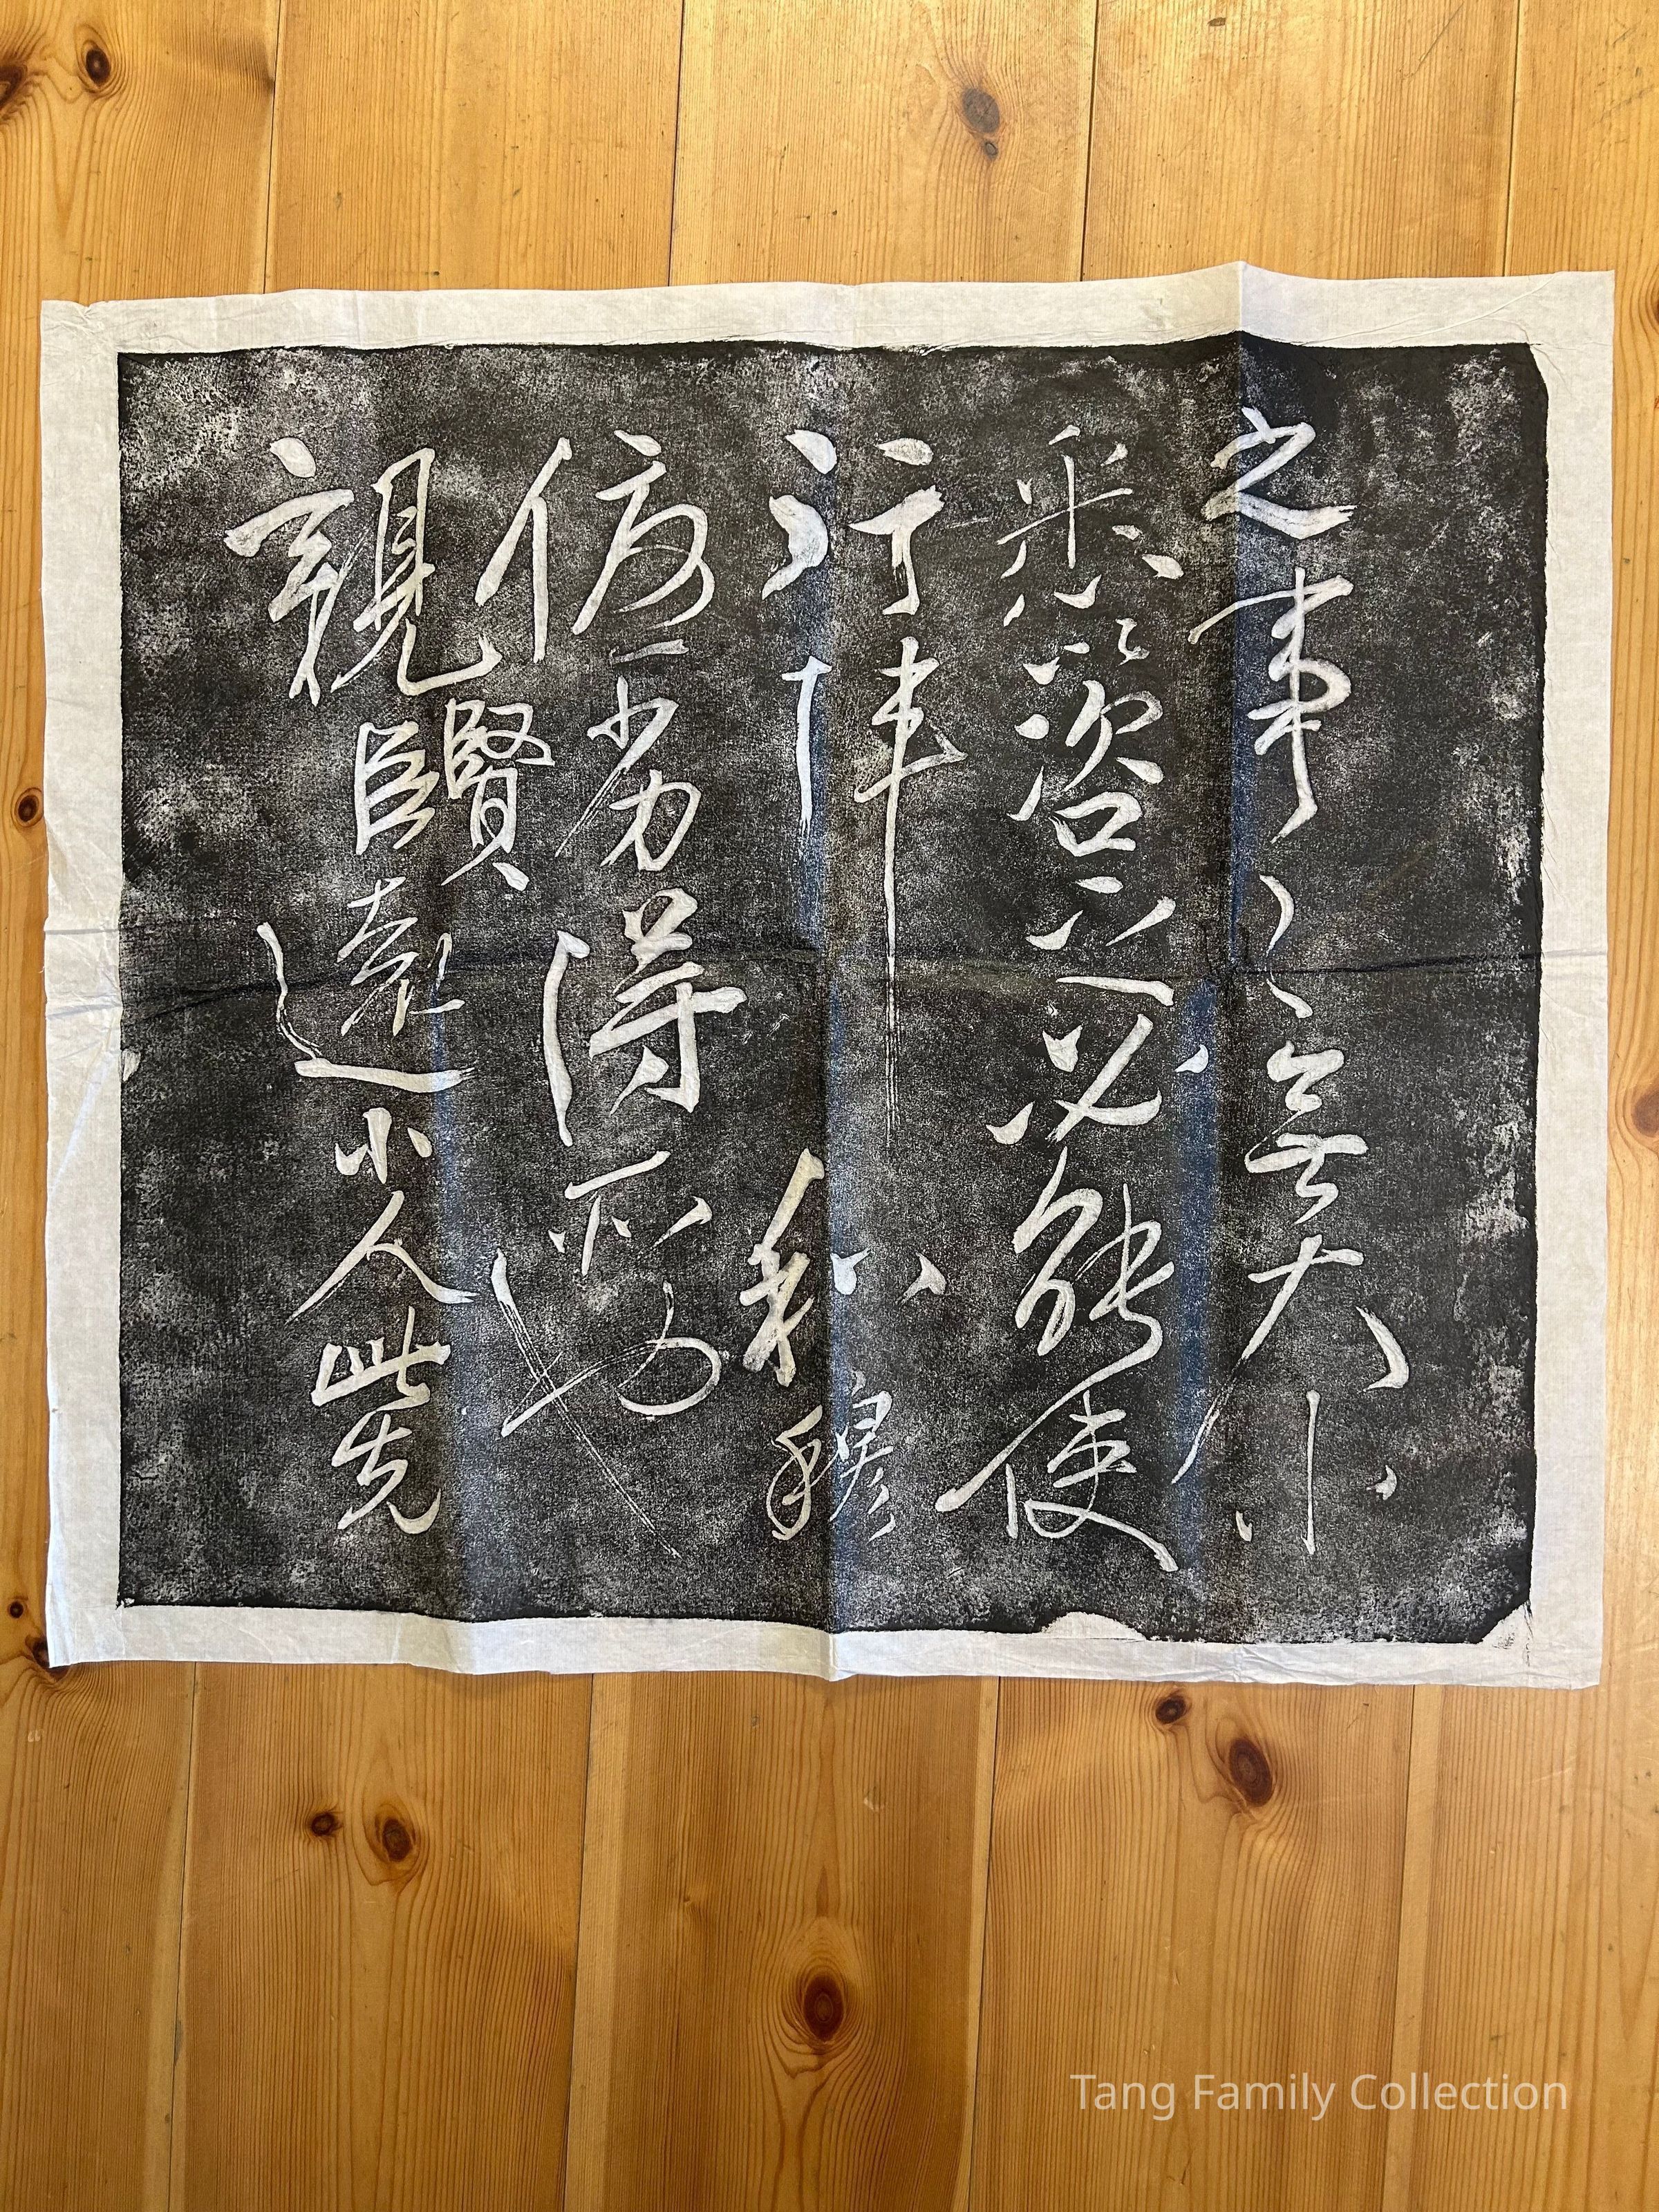 之事〻無大小
悉以咨之必能使
行陣和穆
優劣得所也
親賢臣遠小人此先
Tang Family Collection